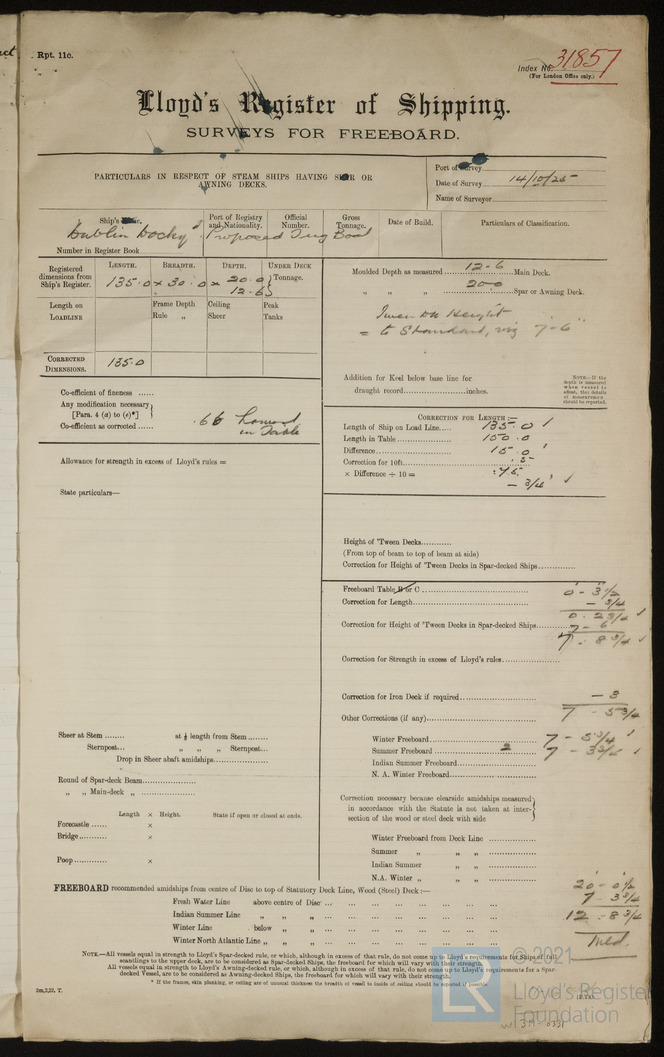 Rpt. 11c.
Index No. 31857
(For London Office only.)
Lloyd's Register of Shipping.
SURVEYS FOR FREEBOARD.
PARTICULARS IN RESPECT OF STEAM SHIPS HAVING SPAR OR
AWNING DECKS.
Port of Survey
Date of Survey 14/10/25
Name of Surveyor
Ship's Name.
Port of Registry and Nationality.
Official Number.
Gross Tonnage.
Date of Build.
Particulars of Classification.
Dublin Docky'd Proposed Tug Boat
Number in Register Book
Registered dimensions from Ship's Register.
LENGTH. BREADTH. DEPTH. UNDER DECK Tonnage.
135.0 x 30.0 x 20.0
12-6
Length on LOADLINE
Frame Depth
Rule „
Ceiling
Sheer
Peak
Tanks
CORRECTED DIMENSIONS. 135.0
Co-efficient of fineness
Any modification necessary
[Para. 4 (a) to (e)*]
Co-efficient as corrected .66 Lowest in Table
Allowance for strength in excess of Lloyd's rules =
State particulars—
Moulded Depth as measured 12-6 Main Deck.
„ „ „ 20-0 Spar or Awning Deck.
Tween Dk Height
= to Standard, viz 7-6"
Addition for Keel below base line for
draught record inches.
NOTE—If the depth is measured when vessel is afloat, the details of measurement should be reported.
CORRECTION FOR LENGTH:—
Length of Ship on Load Line 135.0
Length in Table 150.0
Difference 15.0
Correction for 10ft. .5
× Difference ÷ 10 = .75
- 3/4
Height of 'Tween Decks
(From top of beam to top of beam at side)
Correction for Height of 'Tween Decks in Spar-decked Ships
Freeboard Table B or C 0 - 3 1/2
Correction for Length - 3/4
0 - 2 3/4
Correction for Height of 'Tween Decks in Spar-decked Ships 7 - 6
7 - 8 3/4
Correction for Strength in excess of Lloyd's rules
Correction for Iron Deck if required - 3
7 - 5 3/4
Other Corrections (if any)
Winter Freeboard 7 - 5 3/4
Summer Freeboard 2 7 - 3 3/4
Indian Summer Freeboard
N. A. Winter Freeboard
Sheer at Stem at ⅛ length from Stem
Sternpost „ „ „ Sternpost
Drop in Sheer abaft amidships
Round of Spar-deck Beam
„ „ Main-deck „
Length × Height. State if open or closed at ends.
Forecastle ×
Bridge ×
Poop ×
Correction necessary because clearside amidships measured
in accordance with the Statute is not taken at inter-
section of the wood or steel deck with side
Winter Freeboard from Deck Line
Summer „ „
Indian Summer „ „
N.A. Winter „ „
FREEBOARD recommended amidships from centre of Disc to top of Statutory Deck Line, Wood (Steel) Deck:—
20 - 0 1/2
7 - 3 3/4
12 - 8 3/4
Mld.
Fresh Water Line above centre of Disc
Indian Summer Line „ „ „
Winter Line below „ „
Winter North Atlantic Line „ „ „
NOTE.—All vessels equal in strength to Lloyd's Spar-decked rule, or which, although in excess of that rule, do not come up to Lloyd's requirements for Ships of full
scantlings to the upper deck, are to be considered as Spar-decked Ships, the freeboard for which will vary with their strength.
All vessels equal in strength to Lloyd's Awning-decked rule, or which, although in excess of that rule, do not come up to Lloyd's requirements for a Spar-
decked Vessel, are to be considered as Awning-decked Ships, the freeboard for which will vary with their strength.
* If the frames, skin planking, or ceiling are of unusual thickness the breadth of vessel to inside of ceiling should be reported if possible.
© 2021
LR
Lloyd's Register
Foundation